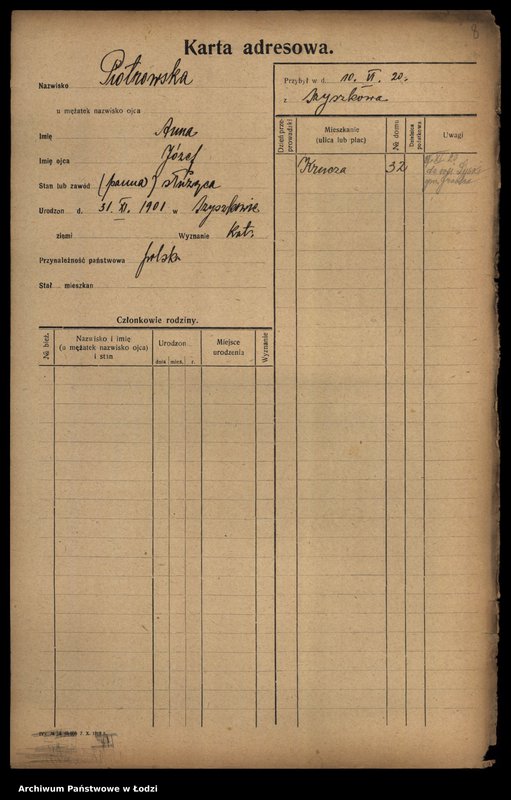 8
Karta adresowa.
Nazwisko Piotrowska
u mężatek nazwisko ojca
Imię Anna
Imię ojca Józef
Stan lub zawód (panna) służąca
Urodzon d. 31. VI. 1901 w Szyszkowie
ziemi Wyznanie Kat.
Przynależność państwowa polska
Stał. mieszkan
Przybył w d. 10. VI. 20.
z Szyszkowa
Dzień przeprowadzki
Mieszkanie
(ulica lub plac)
№ domu
Dzielnica policyjna
Uwagi
Krucza 32
XI 20
do wsi
gm.
Członkowie rodziny.
№ bież.
Nazwisko i imię
(u mężatek nazwisko ojca)
i stan
Urodzon
dnia mies. r.
Miejsce
urodzenia
Wyznanie
7. X.
Archiwum Państwowe w Łodzi